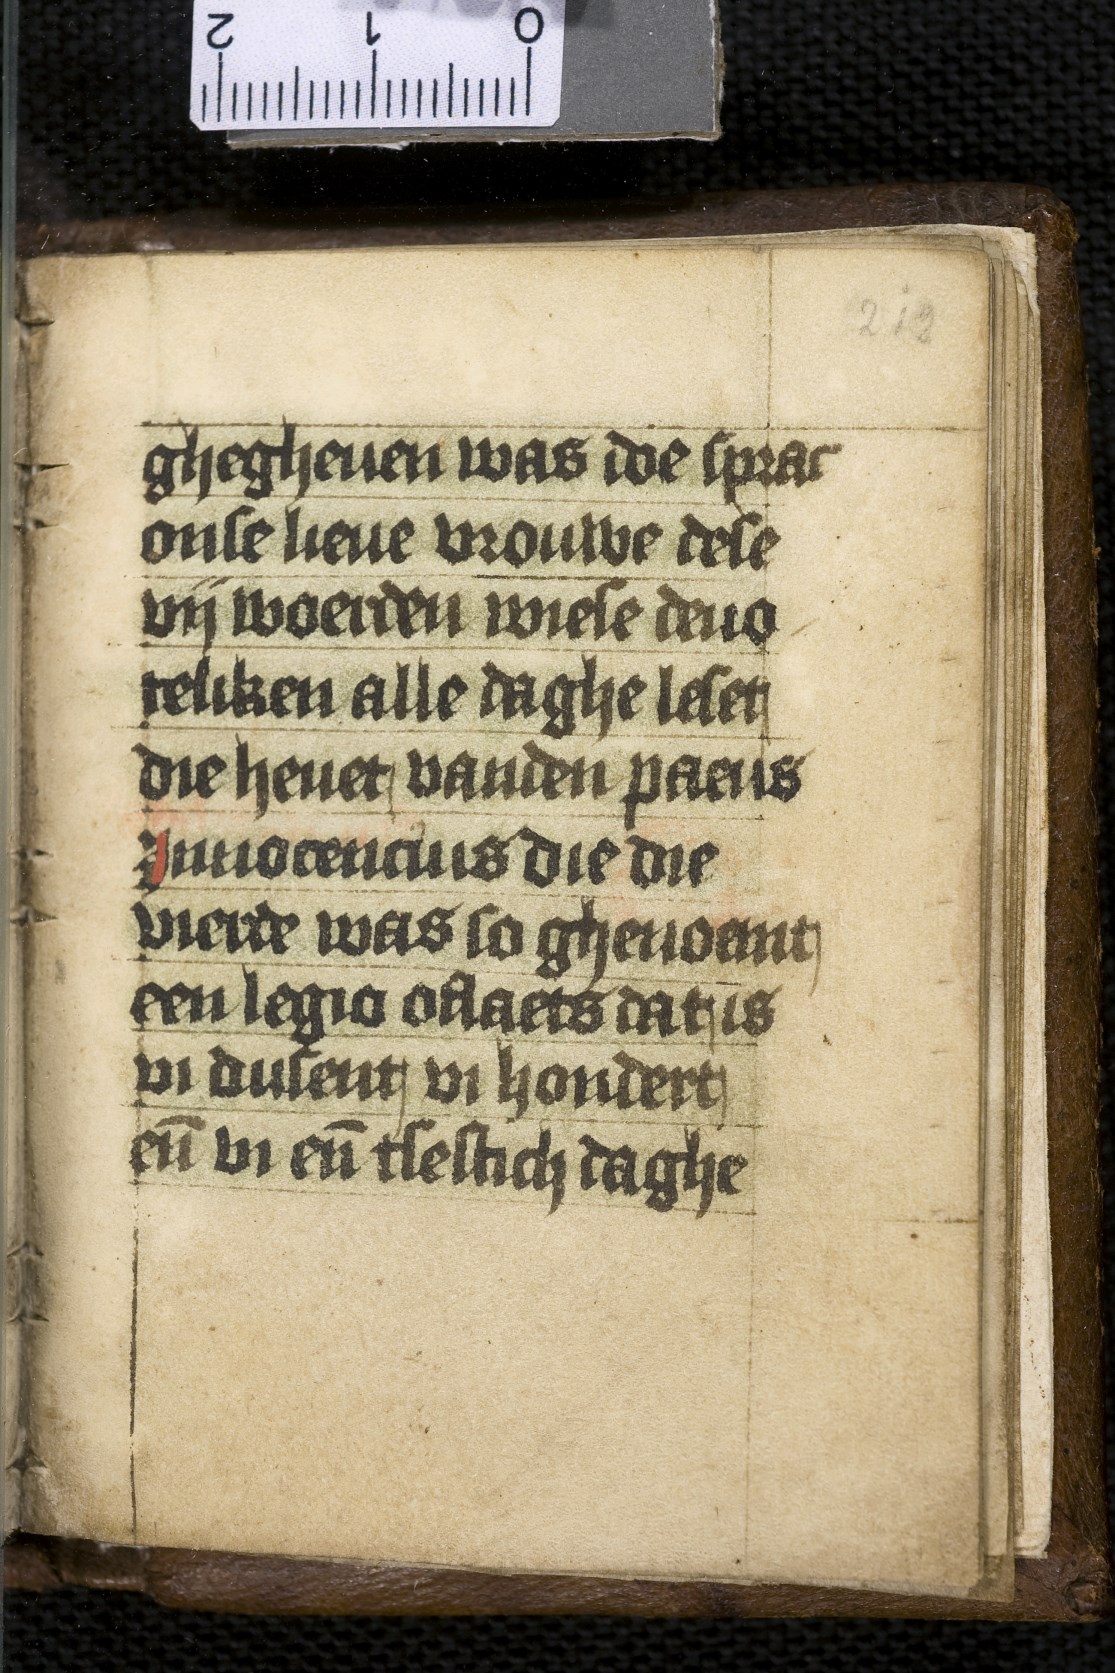 2 1 0
213
ghegheuen was doe sprac
onse lieue vrouwe dese
vij woerden wiese deuo
teliken alle daghe leset
die heuet vanden paeus
Innocencius die die
vierde was so ghenoant
een legio oflaets dat is
vi dusent vi hondert
en̄ vi en̄ tsestich daghe